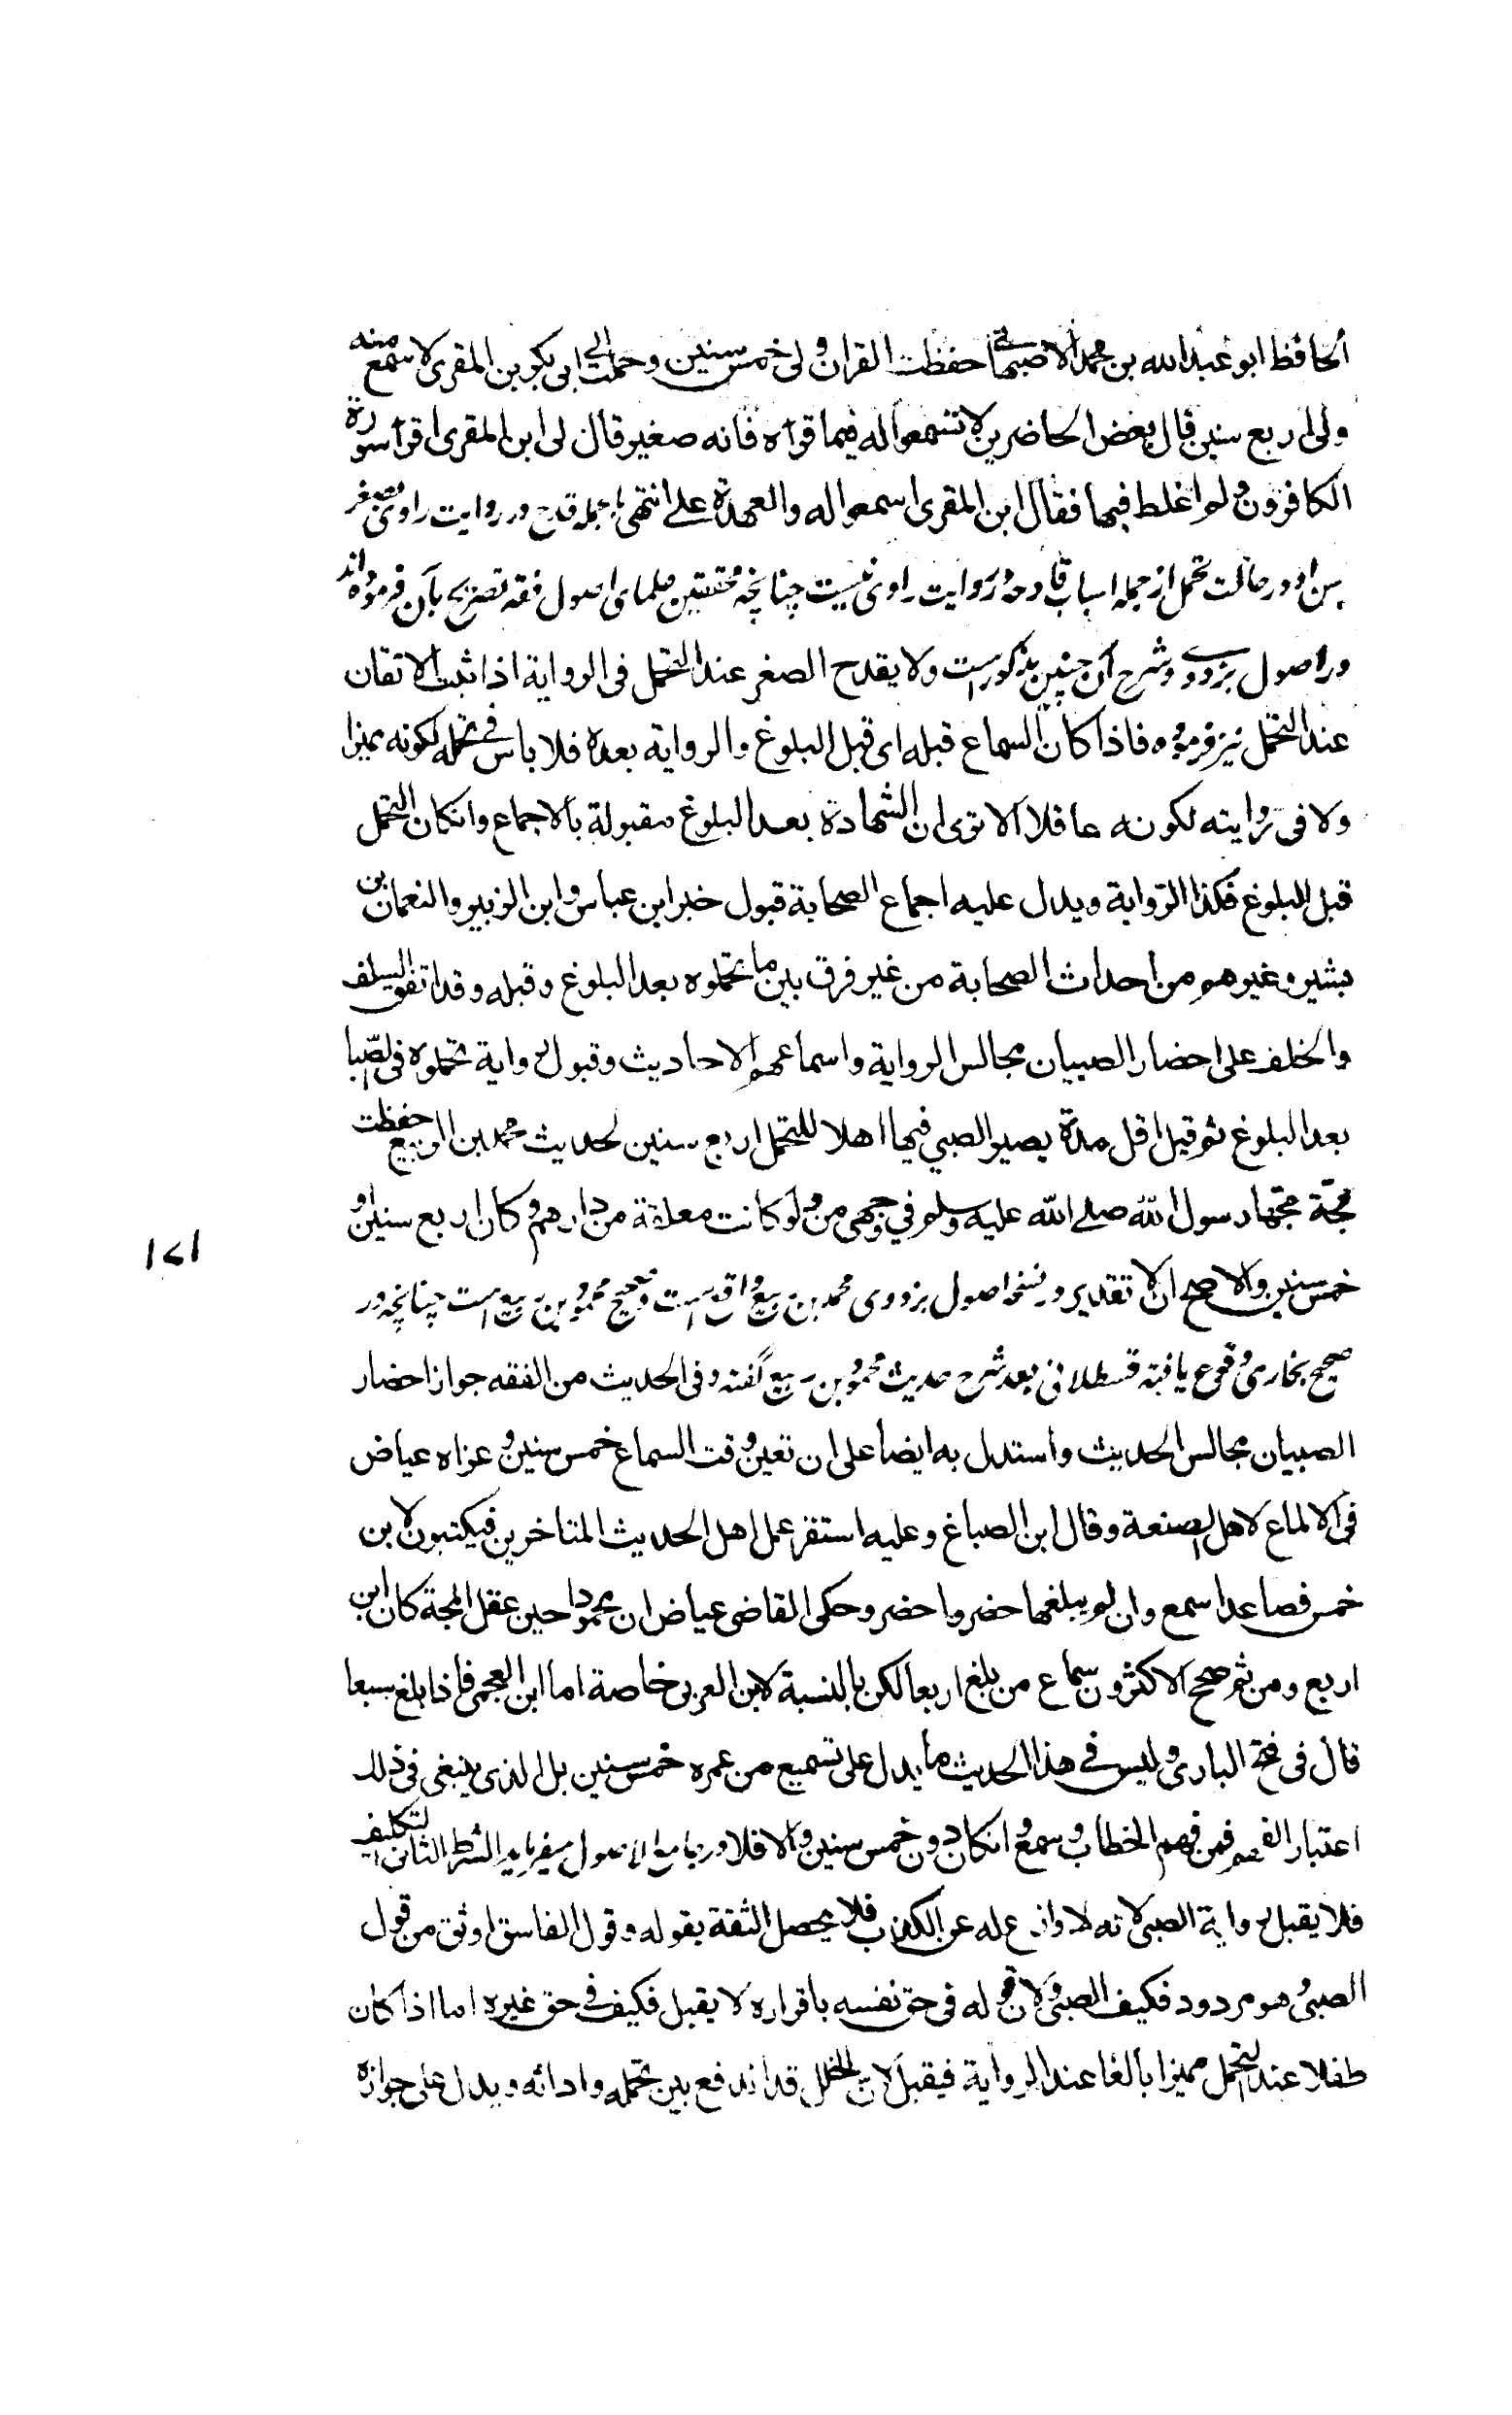 الحافظ ابو عبد الله بن محمد الاصبهانی حفظت القران ولی خمس سنین وحملت الی ابی بکر بن المقری لاسمع منه
ولی اربع سنین قال بعض الحاضرین لا تسمعوا له فیما قراه فانه صغیر قال لی ابن المقری اقرأ سورة
الکافرون ولم اغلط فیها فقال ابن المقری اسمعوا له والعهدة علی انتهی بالجمله قدح در روایت راوی بصغر
سن او در حالت تحمل از جمله اسباب قادحه در روایت راوی نیست چنانچه محققین علمای اصول فقه تصریح بآن فرموده اند
در اصول بزدوی وشرح آن چنین مذکور است ولا یقدح الصغر عند التحمل فی الروایة اذا ثبت الاتقان
عند التحمل نیز فرموده فاذا کان السماع قبله ای قبل البلوغ والروایة بعده فلا باس فی تحمله لکونه ممیزا
ولا فی روایته لکونه عاقلا الا تری ان الشهادة بعد البلوغ مقبولة بالاجماع وانکان التحمل
قبل البلوغ فکذا الروایة ویدل علیه اجماع الصحابة قبول خبر ابن عباس وابن الزبیر والنعمان بن
بشیر وغیرهم من احداث الصحابة من غیر فرق بین ما تحملوه بعد البلوغ وقبله وقد اتفق السلف
والخلف علی احضار الصبیان مجالس الروایة واسماعهم الاحادیث وقبول روایة تحملوه فی الصبا
بعد البلوغ ثم قیل اقل مدة یصیر الصبی فیها اهلا للتحمل اربع سنین لحدیث محمد بن الربیع حفظت
مجّة مجّها رسول الله صلی الله علیه وسلم فی وجهی من دلو کانت معلقة من دارهم وکان اربع سنین او
خمس سنین والاصح ان لا تقدیر در نسخه اصول بزدوی محمد بن ربیع واقع است وصحیح محمود بن ربیع است چنانچه در
صحیح بخاری وقوع یافته قسطلانی بعد شرح حدیث محمود بن ربیع گفته وفی الحدیث من الفقه جواز احضار
الصبیان مجالس الحدیث واستدل به ایضا علی ان تعین وقت السماع خمس سنین وعزاه عیاض
فی الالماع لاهل الصنعة وقال ابن الصباغ وعلیه استقر عمل اهل الحدیث المتاخرین فیکتبون لابن
خمس فصاعدا سمع وان لم یبلغها حضر وما حضر وحکی القاضی عیاض ان محمودا حین عقل المجة کان ابن
اربع ومن ثم صحح الاکثرون سماع من بلغ اربعا لکن بالنسبة لابن العربی خاصة اما ابن العجمی فاذا بلغ سبعا
قال فی فتح الباری ولیس فی هذا الحدیث ما یدل علی تسمیع من عمره خمس سنین بل الذی ینبغی فی ذلک
اعتبار الفهم فمن فهم الخطاب وسمع وانکان دون خمس سنین والا فلا ودر جامع الاصول میفرماید الشرط الثانی التکلیف
فلا یقبل روایة الصبی لانه لا وازع له عن الکذب فلا یحصل الثقة بقوله وقول الفاسق اوثق من قول
الصبی وهو مردود فکیف الصبی ولان قوله فی حق نفسه باقراره لا یقبل فکیف فی حق غیره اما اذا کان
طفلا عند التحمل ممیزا بالغا عند الروایة فیقبل لان الخلل قد اندفع بین تحمله وادائه ویدل علی جوازه
۱۷۱